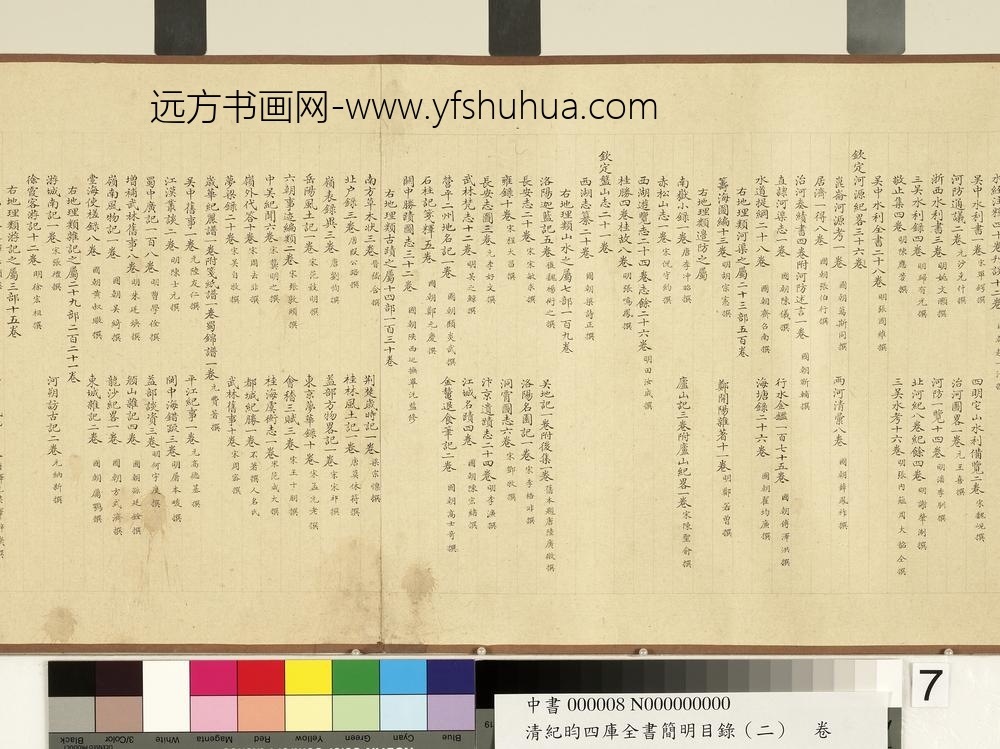 远方书画网-www.yfshuhua.com
吳中水利書一卷 宋單鍔撰
四明它山水利備覽二卷 宋魏峴撰
河防通議二卷 元沙克什撰
治河圖畧一卷 元王喜撰
浙西水利書三卷 明姚文灝撰
河防一覽十四卷 明潘季馴撰
三吳水利錄四卷 明歸有光撰
北河紀八卷紀餘四卷 明謝肇淛撰
敬止集四卷 明陳應芳撰
三吳水考十六卷 明張內蘊周大韶仝撰
吳中水利全書二十八卷 明張國維撰
欽定河源紀畧三十六卷
崑崙河源考一卷 國朝萬斯同撰
兩河清彙八卷 國朝薛鳳祚撰
居濟一得八卷 國朝張伯行撰
治河奏績書四卷附河防述言一卷 國朝靳輔撰
直隸河渠志一卷 國朝陳儀撰
行水金鑑一百七十五卷 國朝傅澤洪撰
水道提綱二十八卷 國朝齊召南撰
海塘錄二十六卷 國朝翟均廉撰
右地理類河渠之屬二十三部五百卷
籌海圖編十三卷 明胡宗憲撰
鄭開陽雜著十一卷 明鄭若曾撰
右地理類邊防之屬
南嶽小錄一卷 唐李沖昭撰
廬山記三卷附廬山紀畧一卷 宋陳聖俞撰
赤松山志一卷 宋倪守約撰
西湖遊覽志二十四卷志餘二十六卷 明田汝成撰
桂勝四卷桂故八卷 明張鳴鳳撰
欽定盤山志二十一卷
西湖志纂十二卷 國朝梁詩正撰
右地理類山水之屬七部一百九卷
洛陽迦藍記五卷 後魏楊衒之撰
吳地記一卷附後集一卷 舊本題唐陸廣微撰
長安志二十卷 宋宋敏求撰
洛陽名園記一卷 宋李格非撰
雍錄十卷 宋程大昌撰
洞霄圖志六卷 宋鄧牧撰
長安志圖三卷 元李好文撰
汴京遺蹟志二十四卷 明李濂撰
武林梵志十二卷 明吳之鯨撰
江城名蹟四卷 國朝陳宏緒撰
營平二州地名記一卷 國朝顧炎武撰
金鰲退食筆記二卷 國朝高士奇撰
石柱記箋釋五卷 國朝鄭元慶撰
關中勝蹟圖志三十二卷 國朝陝西巡撫畢沅監修
右地理類古蹟之屬十四部一百三十卷
南方草木狀三卷 晉嵇含撰
荆楚歲時記一卷 梁宗懍撰
北户錄三卷 唐段公路撰
桂林風土記一卷 唐莫休符撰
嶺表錄異三卷 唐劉恂撰
益部方物畧記一卷 宋宋祁撰
岳陽風土記一卷 宋范致明撰
東京夢華錄十卷 宋孟元老撰
六朝事迹編類二卷 宋張敦頤撰
會稽三賦三卷 宋王十朋撰
中吳紀聞六卷 宋龔明之撰
桂海虞衡志一卷 宋范成大撰
嶺外代答十卷 宋周去非撰
都城紀勝一卷 不著撰人名氏
夢梁錄二十卷 宋吳自牧撰
武林舊事十卷 宋周密撰
歲華紀麗譜一卷附箋紙譜一卷蜀錦譜一卷 元費著撰
吳中舊事一卷 元陸友仁撰
平江紀事一卷 元高德基撰
江漢叢談二卷 明陳士元撰
閩中海錯疏三卷 明屠本畯撰
蜀中廣記一百八卷 明曹學佺撰
益部談資三卷 明何宇度撰
增補武林舊事八卷 明朱廷煥撰
顏山雜記四卷 國朝孫廷銓撰
嶺南風物記一卷 國朝吳綺撰
龍沙紀畧一卷 國朝方式濟撰
臺海使槎錄八卷 國朝黃叔璥撰
東城雜記二卷 國朝厲鶚撰
右地理類雜記之屬二十九部二百二十一卷
游城南記一卷 宋張禮撰
河朔訪古記二卷 元納新撰
徐霞客游記十二卷 明徐宏祖撰
右地理類游記之屬三部十五卷
7
Black
3/Color
White
Magenta
Red
Yellow
Green
Cyan
Blue
19
中書 000008 N000000000
清紀昀四庫全書簡明目錄（二） 卷